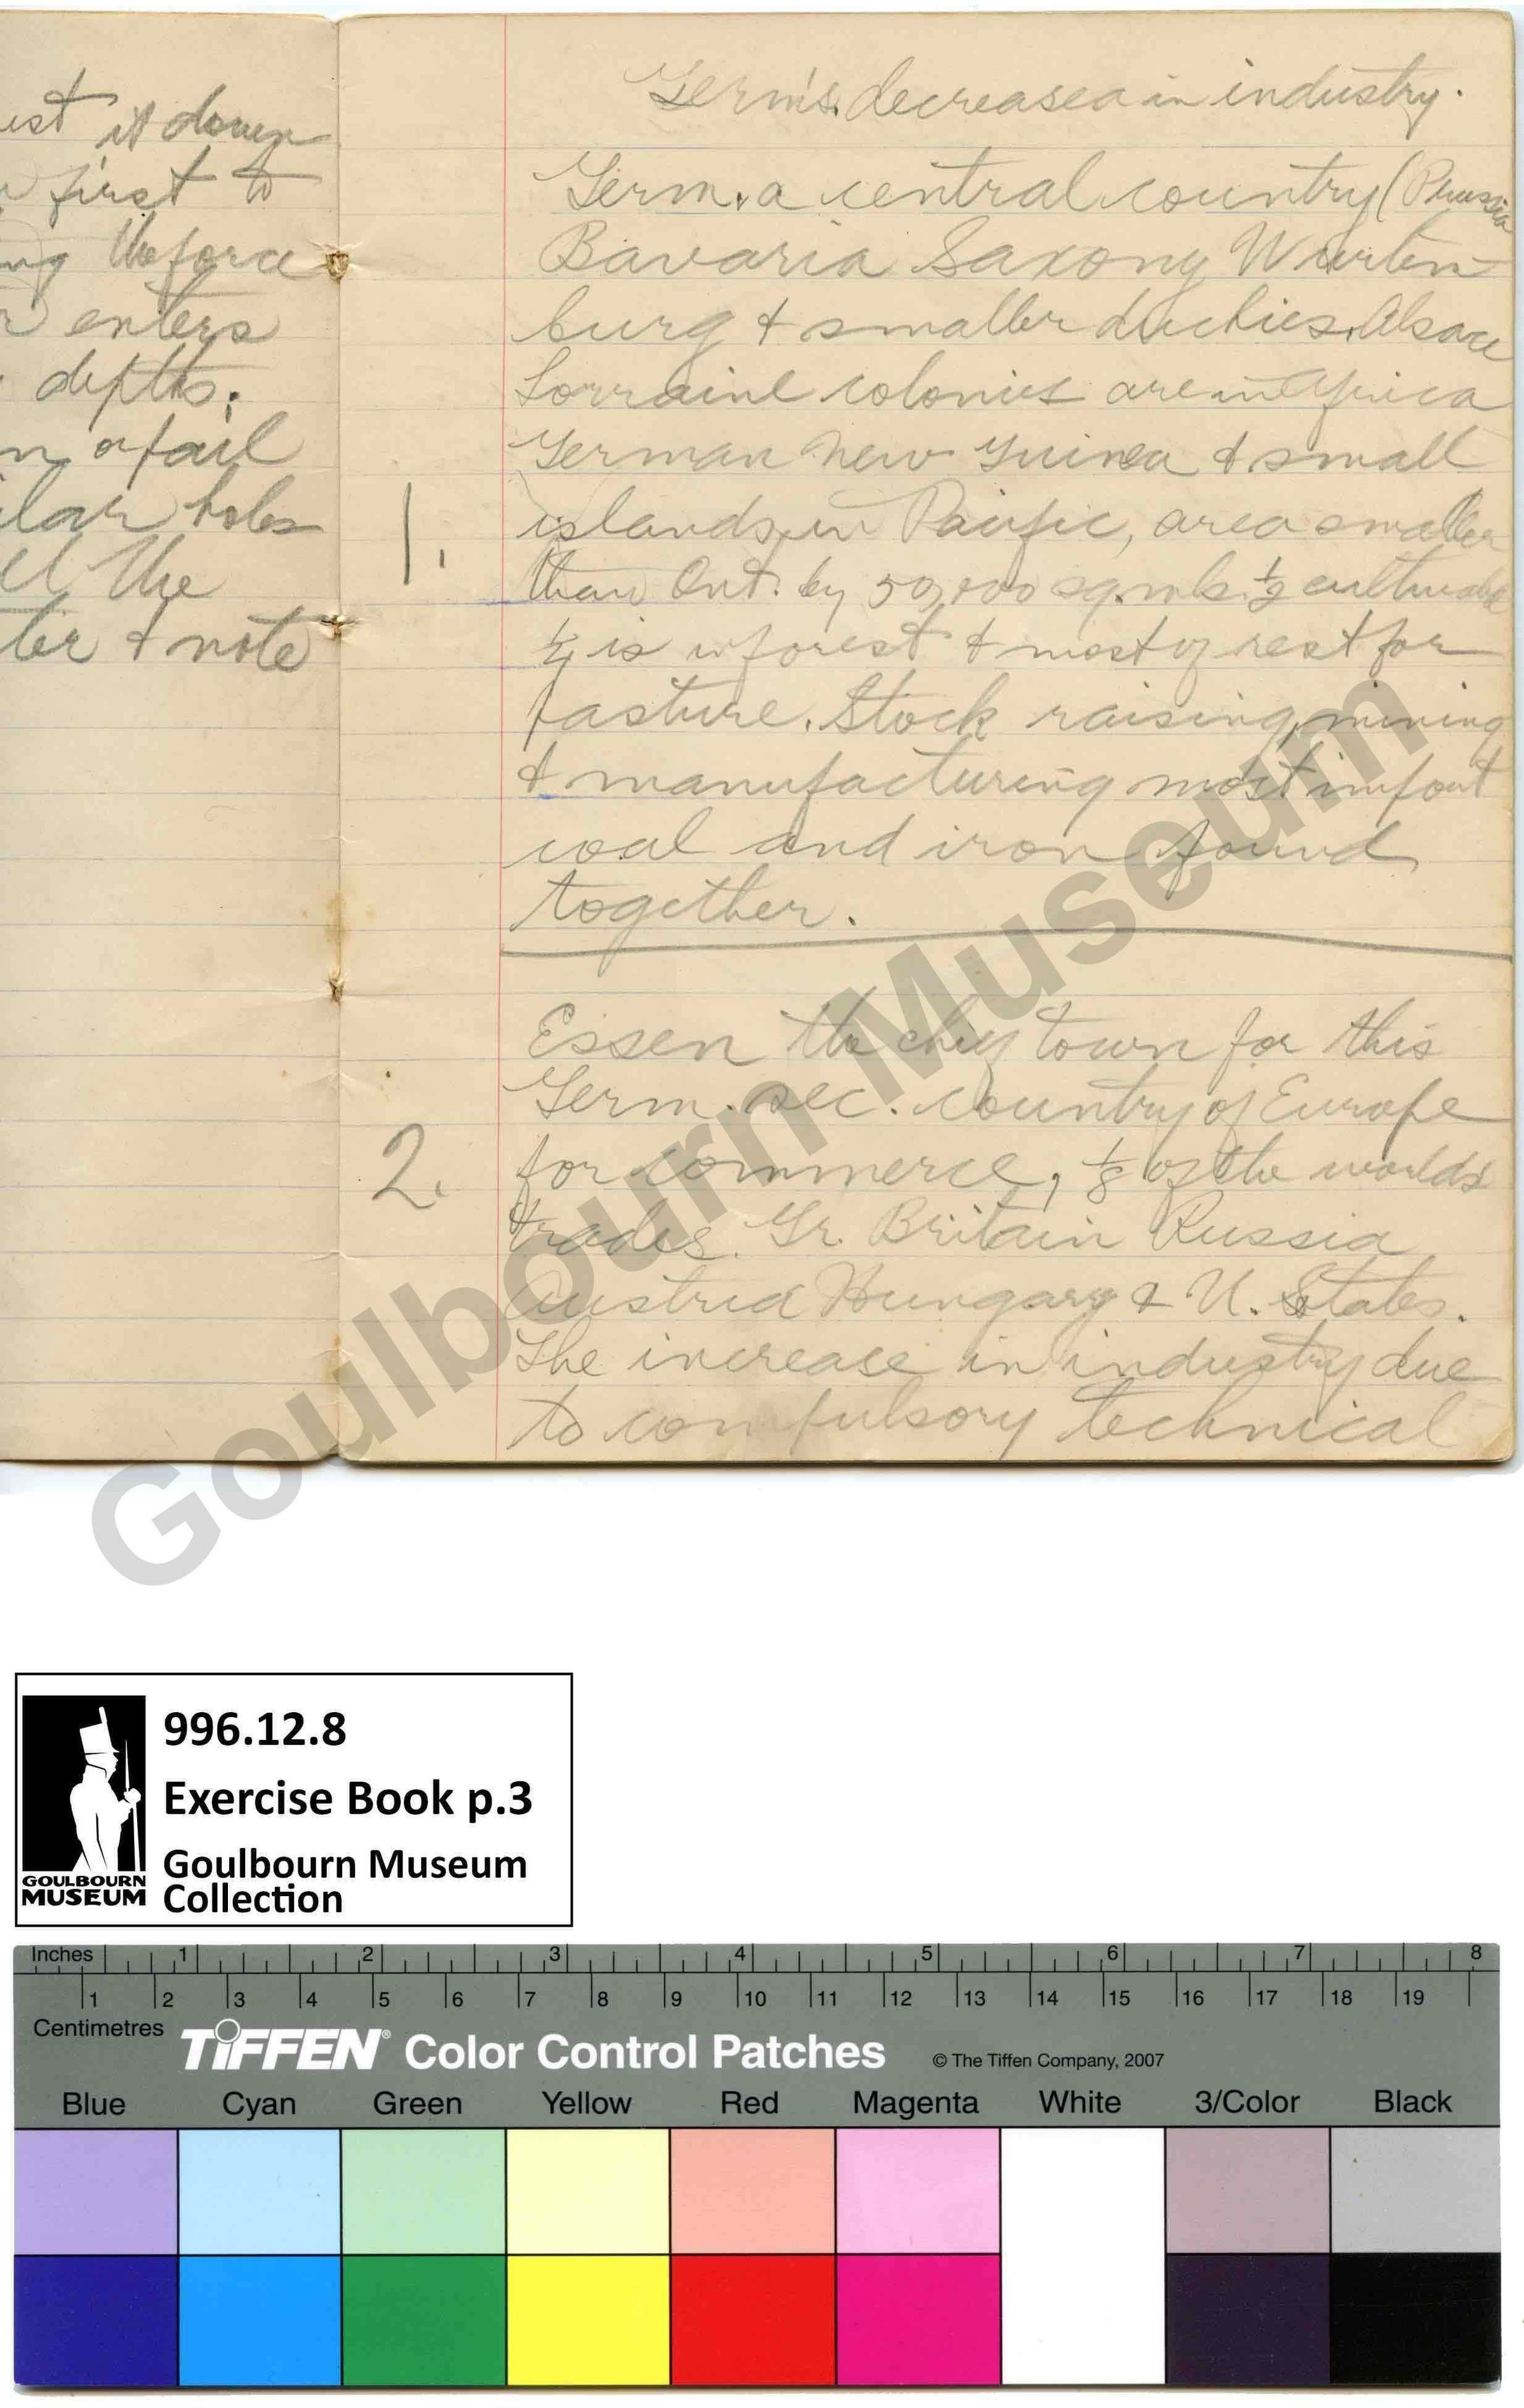 ist it down
first to
ng the force
r enters
depths.
n a pail
ilar holes
ll the
ter & note
Germ's. decreasea in industry.
Germ. a central country (Prussia
Bavaria Saxony Wurten
burg & smaller duchies. Alsace
Lorraine colonies are in Africa
German New Guinea & small
islands in Pacific, area smaller
1.
than Ont. by 50,000 sq. mls. ½ culturable
¼ is in forest & most of rest for
pasture. Stock raising, mining
& manufacturing most import
coal and iron found
together.
Essen the chief town for this
Germ. sec. country of Europe
2.
for commerce, ⅛ of the worlds
trades. Gr. Britain Russia
Austria Hungary & U. States.
The increase in industry due
to compulsory technical
Goulbourn Museum
996.12.8
Exercise Book p.3
Goulbourn Museum
Collection
GOULBOURN
MUSEUM
Inches 1 2 3 4 5 6 7 8
1 2 3 4 5 6 7 8 9 10 11 12 13 14 15 16 17 18 19
Centimetres
TIFFEN® Color Control Patches © The Tiffen Company, 2007
Blue Cyan Green Yellow Red Magenta White 3/Color Black